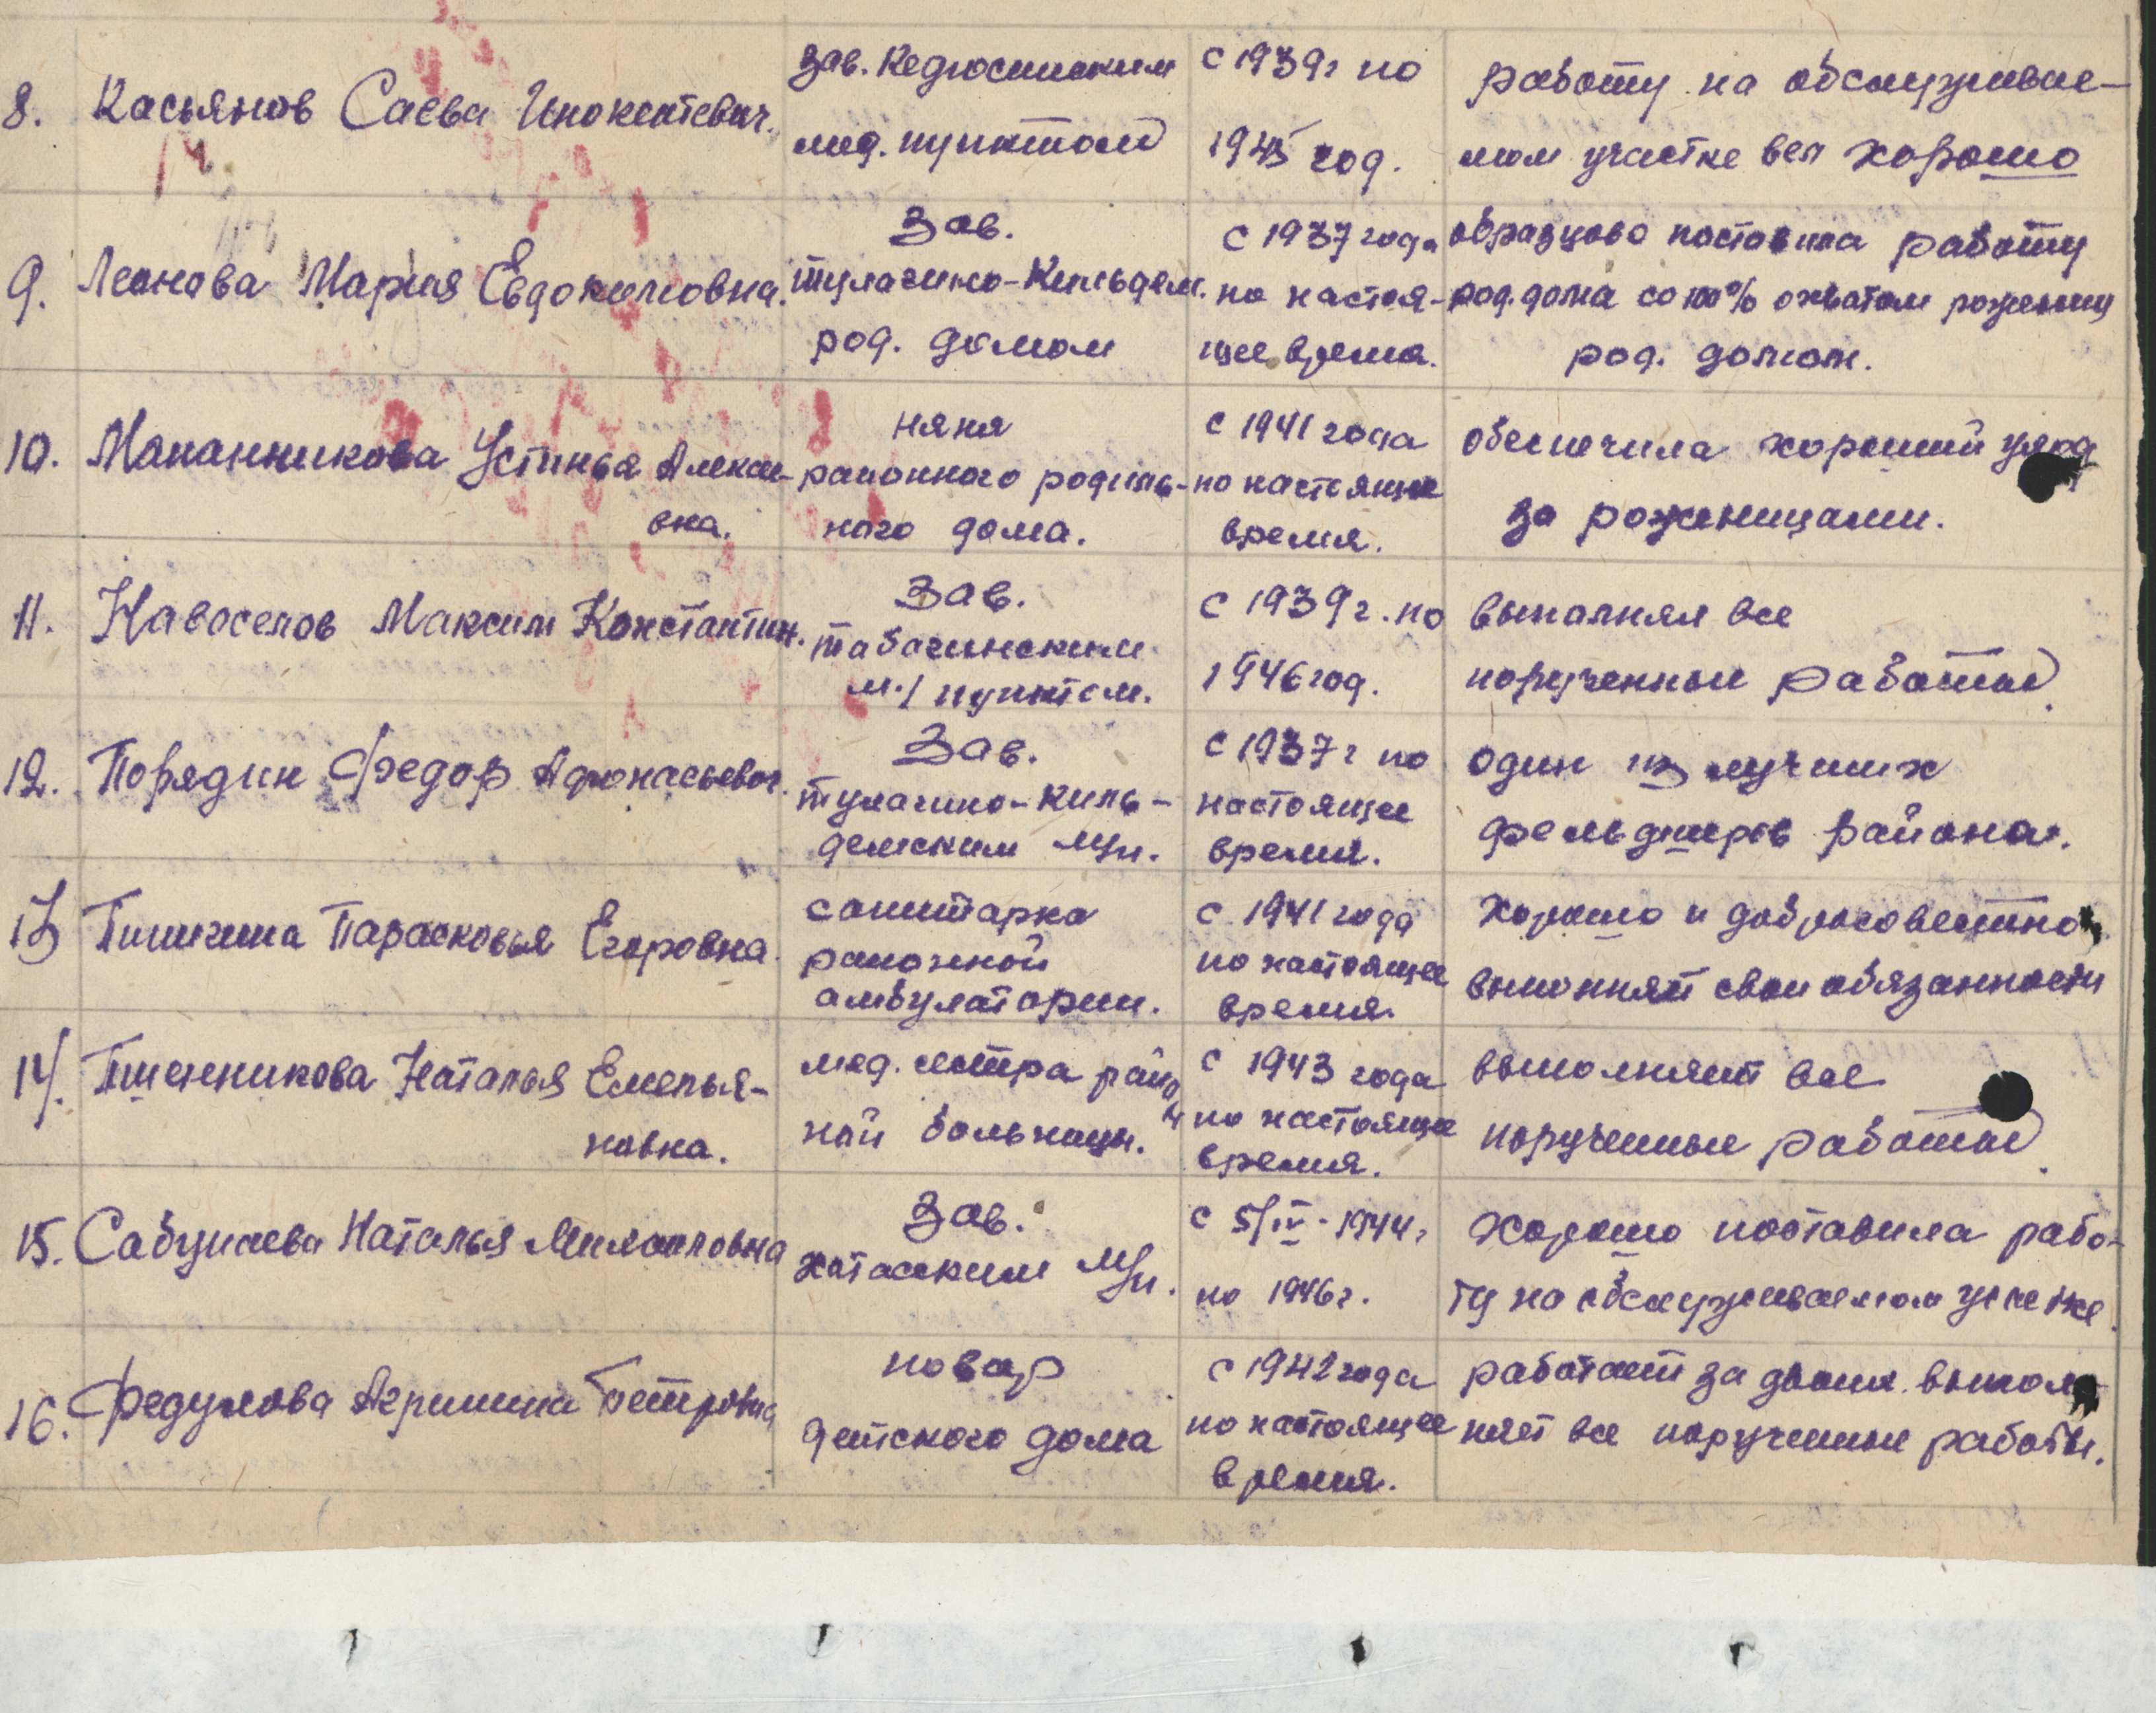 8. Касьянов Савва Инокентевич.
зав. Кедюсинским
мед. пунктом
с 1939г по
1945 год.
работу на обслуживае-
мом участке вел хорошо
9. Леонова Мария Евдокимовна.
Зав.
тулагино-Кильдям.
род. домом
с 1937 года
по настоя-
щее время.
образцово поставила работу
род. дома со 100% охватом рожениц
род. домом.
10. Мапанникова Устинья Алексе-
вна.
няня
районного родиль-
ного дома.
с 1941 года
по настоящее
время.
обеспечила хороший уход
за роженицами.
11. Новоселов Максим Константин.
Зав.
табагинским
м./пунктом.
с 1939г. по
1946 год.
выполнял все
порученные работы.
12. Порядин Федор Афонасьевич.
Зав.
тулагино-киль-
демским м/п.
с 1937г по
настоящее
время.
один из лучших
фельдшеров района.
13 Пшигина Парасковья Егоровна.
санитарка
районной
амбулатории.
с 1941 года
по настоящее
время.
Хорошо и добросовестно
выполняет свои обязанности
14. Пшенникова Наталья Емелья-
новна.
мед. сестра район
ной больницы.
с 1943 года
по настояще
время.
выполняет все
порученные работы.
15. Сабунаева Наталья Михайловна
Зав.
хатасским м/п.
с 5/IV-1944г
по 1946г.
Хорошо поставила рабо-
ту на обслуживаемом участке.
16. Федулова Агрипина Петровна
повар
детского дома
с 1942 года
по настоящее
время.
работает за двоих. выпол
няет все порученные работы.